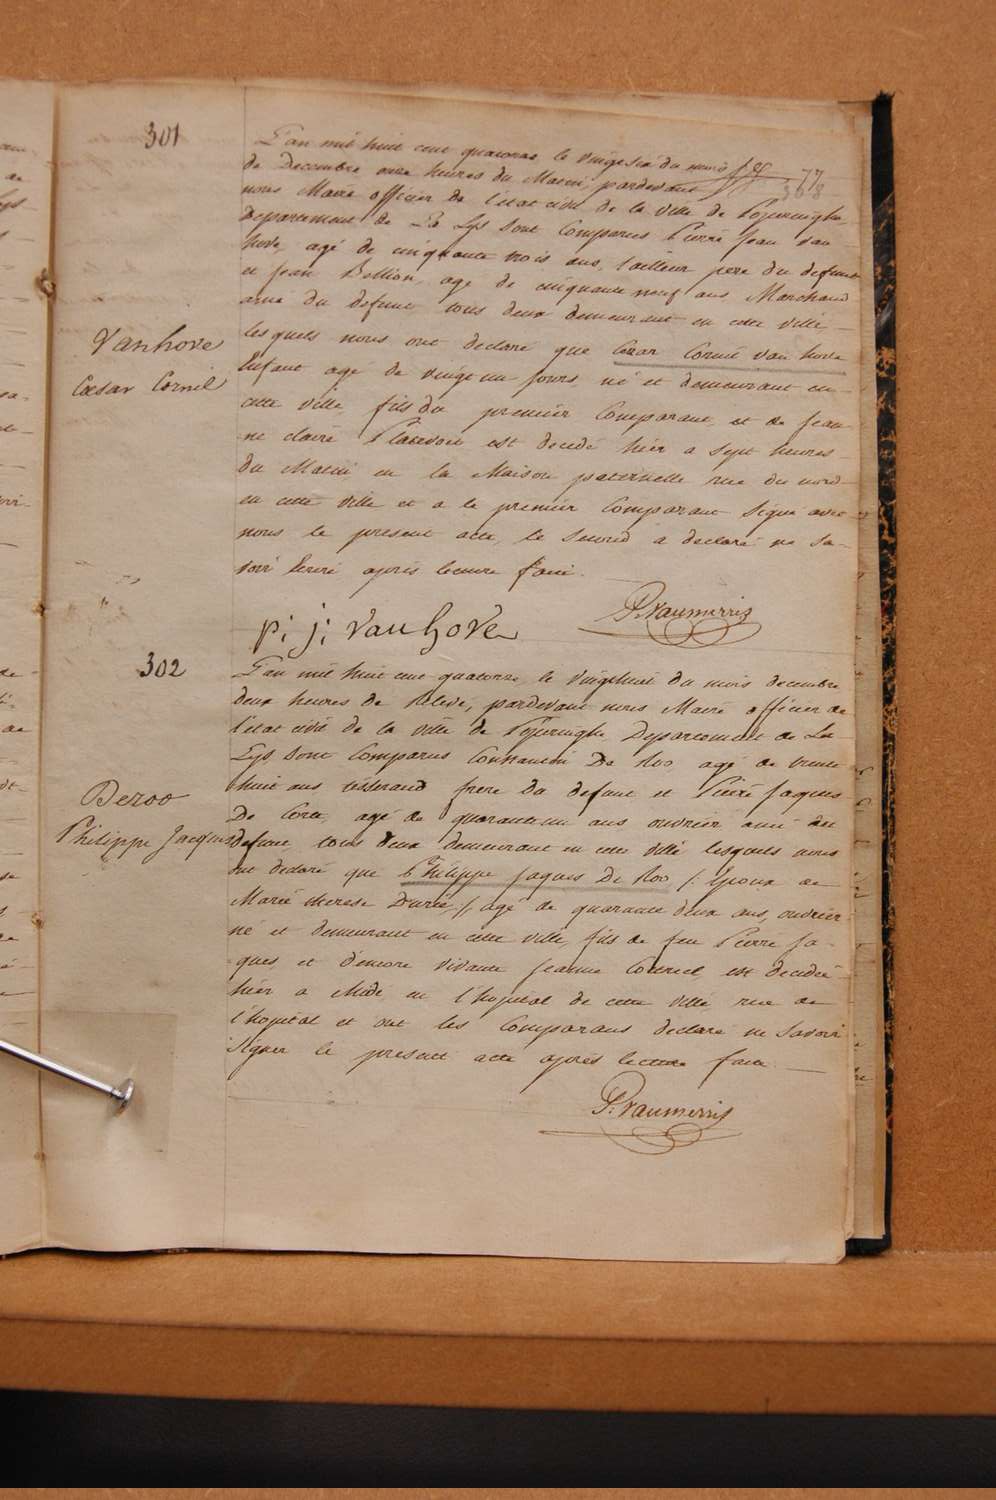 301
L'an mil huit cent quatorze le vingt six du mois
77
368
de Decembre onze heures du Matin, pardevant
nous Maire officier de l'état civil de la ville de Poperinghe
Departement de La Lys sont Comparus Pierre Jean van
hove, agé de cinquante trois ans, tailleur pere du defunt
et Jean Bellion, agé de cinquante neuf ans Marchand
ami du defunt tous deux demeurant en cette ville
lesquels nous ont declaré que Cesar Cornil van hove
Vanhove
Cæsar Cornil
Enfant agé de vingt un jours né et demeurant en
cette ville, fils du premier Comparant, et de Jean-
ne claire est decedé hier a sept heures
du Matin en la Maison paternelle rue du nord
en cette ville et a le premier Comparant signé avec
nous le present acte, le second a declaré ne sa-
voir Ecrire après lecture faite.
P. Vanmerris
p: j: vanhove
302
L'an mil huit cent quatorze, le vingthuit du mois decembre
deux heures de Relevé, pardevant nous Maire officier de
l'état civil de la ville de Poperinghe Departement de La
Lys sont Comparus Constantin De Roo, agé de trente
huit ans tisserand frere du defunt et Pierre Jaques
Deroo
Philippe Jacques
De Cörte, agé de quarante un ans ouvrier ami du
defunt, tous deux demeurant en cette ville lesquels nous
ont declaré que Philippe Jaques De Roo /: Epoux de
Marie therese Durie, :/ agé de quarante deux ans, ouvrier
né et demeurant en cette ville, fils de feu Pierre Ja-
ques, et d'encore vivante Jeanne est decedé
hier a Midi en l'hopital de cette ville rue de
l'hopital et ont les Comparans declaré ne savoir
signer le present acte après lecture faite.
P. Vanmerris